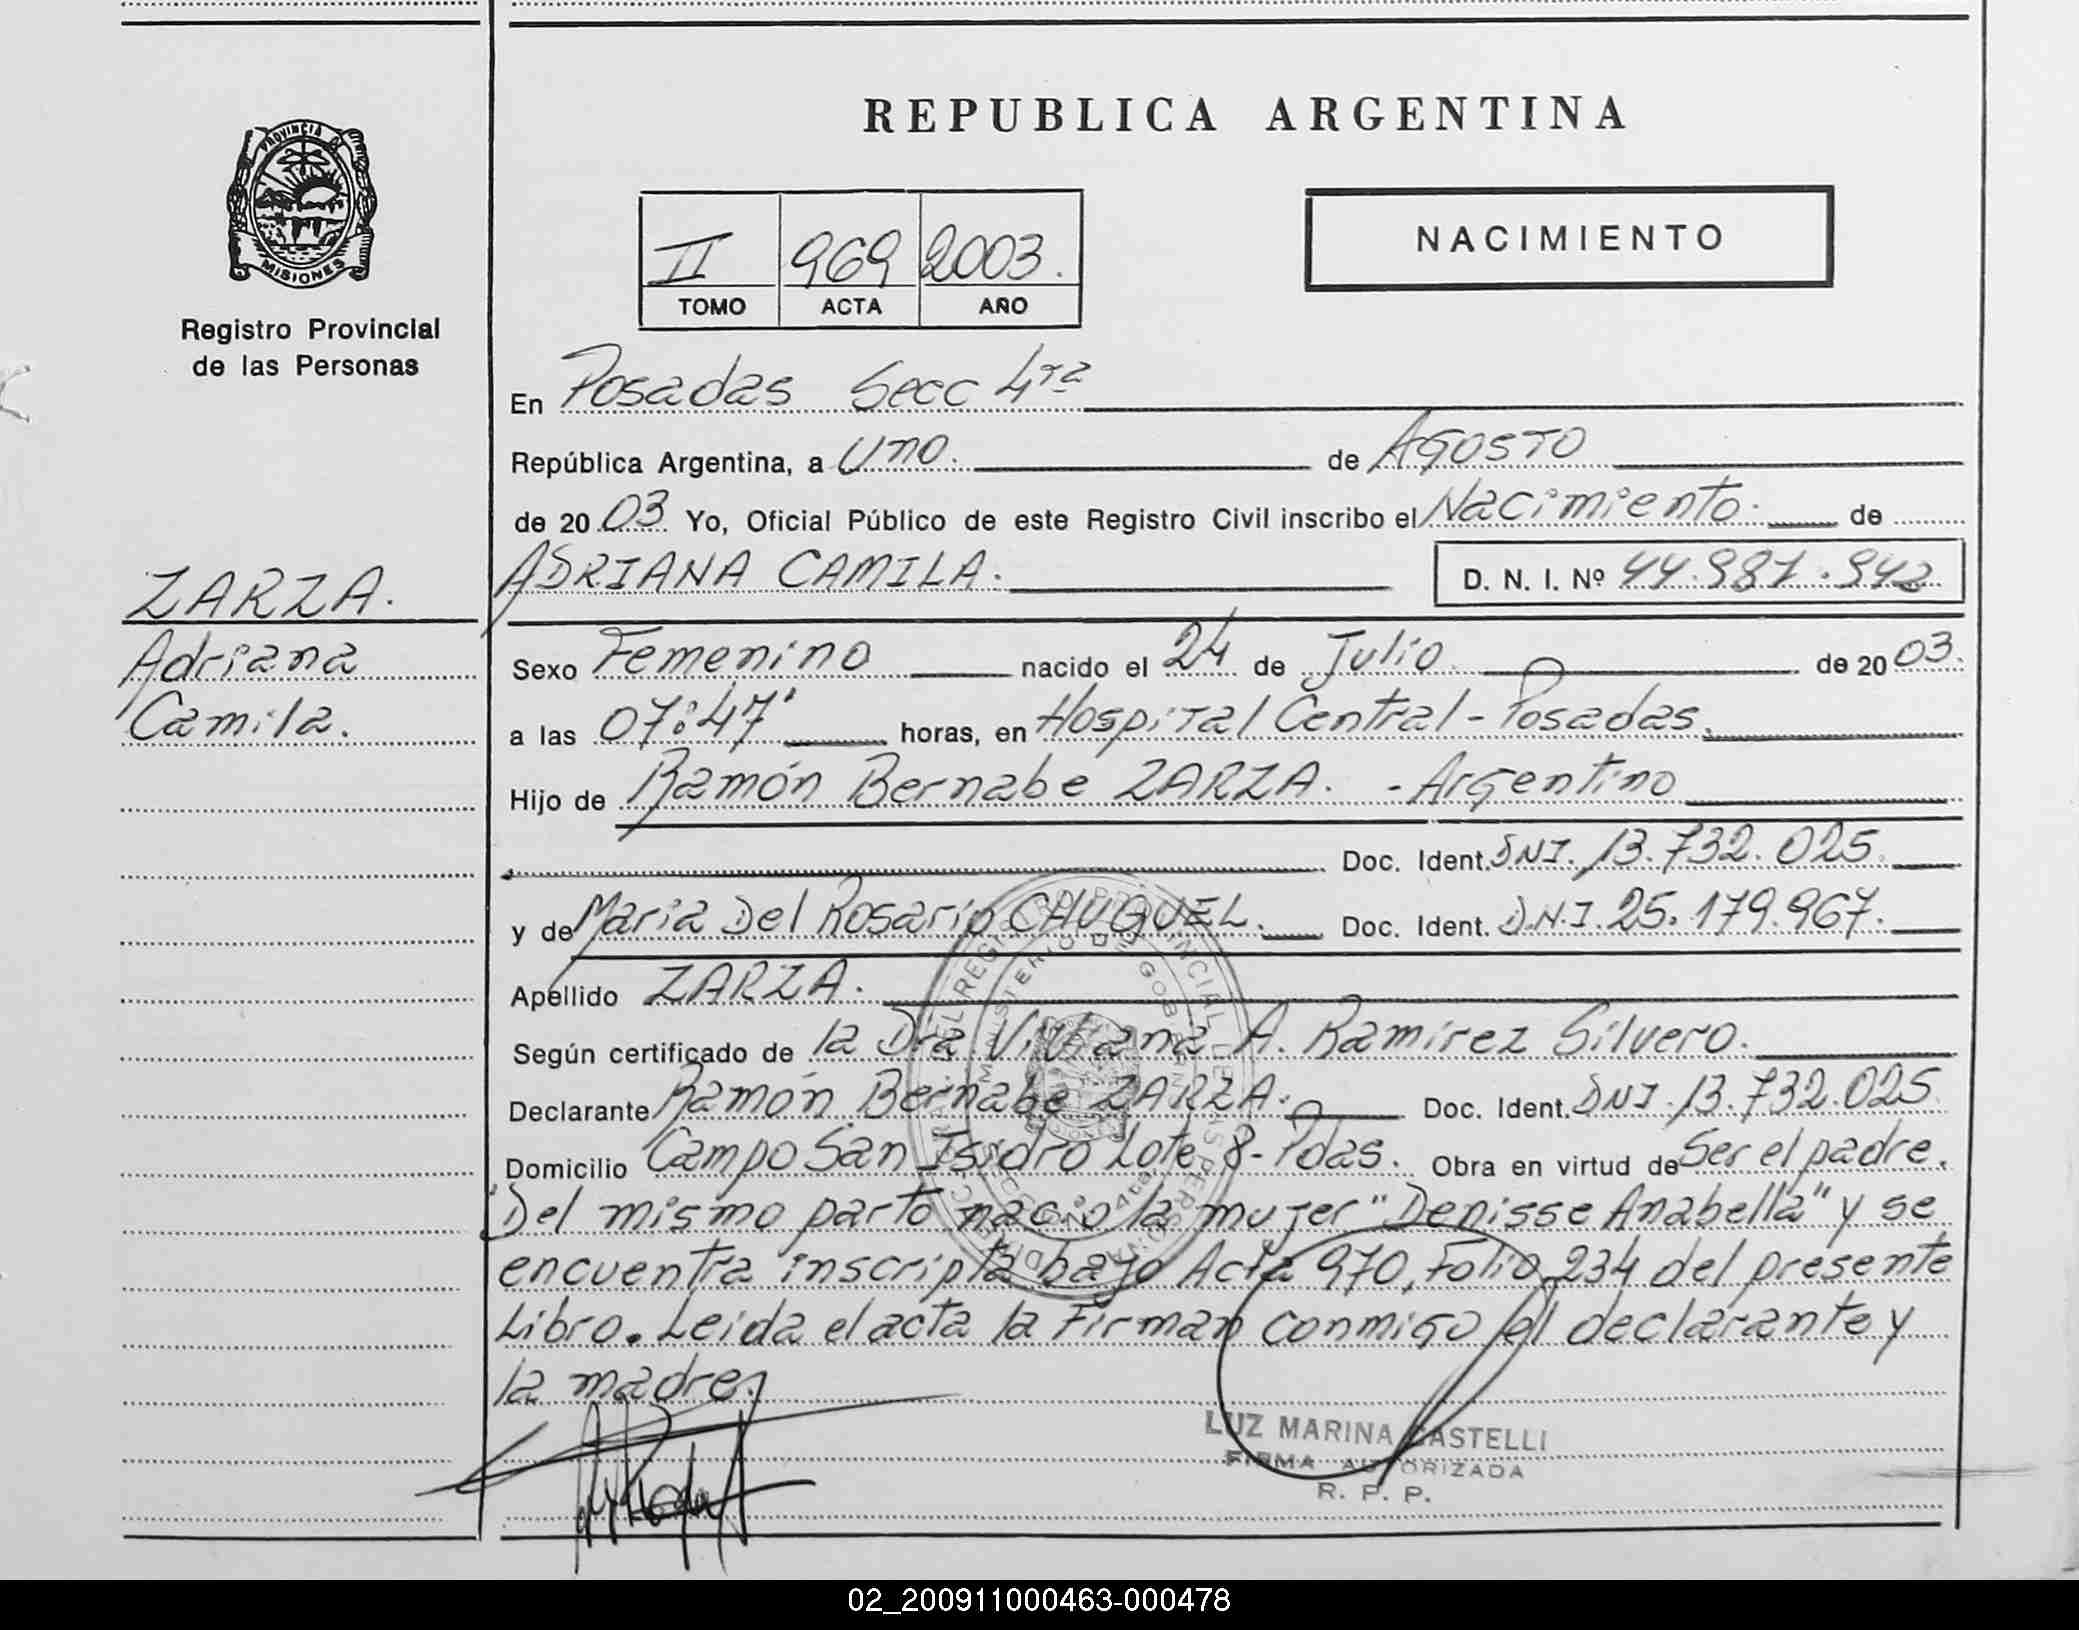 REPUBLICA ARGENTINA
PROVINCIA DE
MISIONES
Registro Provincial
de las Personas
II 969 2003.
TOMO ACTA AÑO
NACIMIENTO
En Posadas Secc 4ra
República Argentina, a uno. de Agosto
de 20 03 Yo, Oficial Público de este Registro Civil inscribo el Nacimiento. de
ADRIANA CAMILA. D. N. I. Nº 44.987.942
ZARZA.
Adriana
Camila.
Sexo Femenino nacido el 24 de Julio de 20 03.
a las 07:47' horas, en Hospital Central - Posadas.
Hijo de Ramón Bernabe ZARZA. - Argentino
Doc. Ident. DNI. 13.732.025
y de Maria Del Rosario CHUGUEL. Doc. Ident. D.N.I 25.179.967.
Apellido ZARZA.
Según certificado de la Dra Viviana A. Ramirez Silvero.
Declarante Ramón Bernabe ZARZA. Doc. Ident. DNI. 13.732.025
Domicilio Campo San Isidro Lote 8- Pdas. Obra en virtud de Ser el padre.
Del mismo parto nacio la mujer "Denisse Anabella" y se
encuentra inscripta bajo Acta 970, Folio 234 del presente
Libro. Leida el acta la Firman conmigo el declarante y
la madre.
LUZ MARINA CASTELLI
FIRMA AUTORIZADA
R. P. P.
02_200911000463-000478